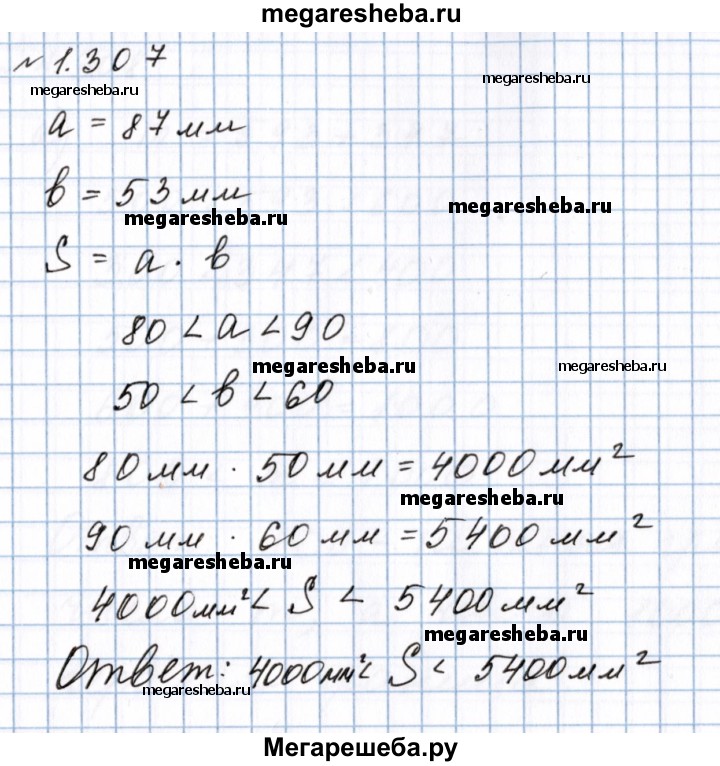 megaresheba.ru
№ 1.307
megaresheba.ru
megaresheba.ru
a = 87 мм
b = 53 мм
megaresheba.ru
megaresheba.ru
S = a · b
80 < a < 90
megaresheba.ru
megaresheba.ru
50 < b < 60
80 мм · 50 мм = 4000 мм²
megaresheba.ru
90 мм · 60 мм = 5400 мм²
megaresheba.ru
4000 мм² < S < 5400 мм²
megaresheba.ru
Ответ: 4000 мм² < S < 5400 мм²
megaresheba.ru
Мегарешеба.ру